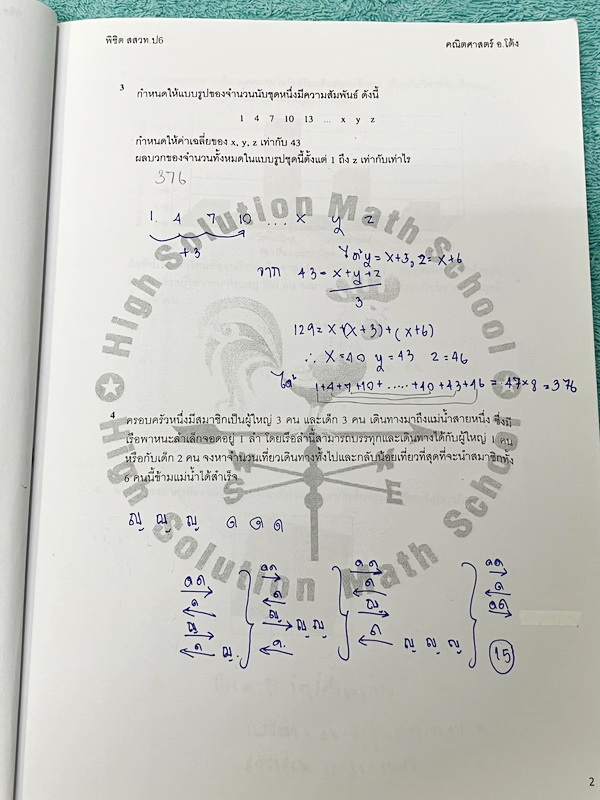 พิชิต สสวท.ป6
คณิตศาสตร์ อ.โต้ง
3
กำหนดให้แบบรูปของจำนวนนับชุดหนึ่งมีความสัมพันธ์ ดังนี้
1 4 7 10 13 ... x y z
กำหนดให้ค่าเฉลี่ยของ x, y, z เท่ากับ 43
ผลบวกของจำนวนทั้งหมดในแบบรูปชุดนี้ตั้งแต่ 1 ถึง z เท่ากับเท่าไร
376
1. 4 7 10 ... x y z
+3
ได้ y = x+3, z = x+6
จาก 43 = x+y+z
3
129 = x+(x+3)+(x+6)
∴ x=40 y=43 z=46
ได้ 1+4+7+10+......+40+43+46 = 47×8 = 376
4
ครอบครัวหนึ่งมีสมาชิกเป็นผู้ใหญ่ 3 คน และเด็ก 3 คน เดินทางมาถึงแม่น้ำสายหนึ่ง ซึ่งมี
เรือพาหนะลำเล็กจอดอยู่ 1 ลำ โดยเรือลำนี้สามารถบรรทุกและเดินทางได้กับผู้ใหญ่ 1 คน
หรือกับเด็ก 2 คน จงหาจำนวนเที่ยวเดินทางทั้งไปและกลับน้อยเที่ยวที่สุดที่จะนำสมาชิกทั้ง
6 คนนี้ข้ามแม่น้ำได้สำเร็จ
ญ ญ ญ ด ด ด
ดด ดด ดด ดด
ด ด ด ด
ญ ญ ญ ญ ญ ดด
ด ญ ด ด ญ ญ ญ 15
High Solution Math School
High Solution Math School
N
S
E
2